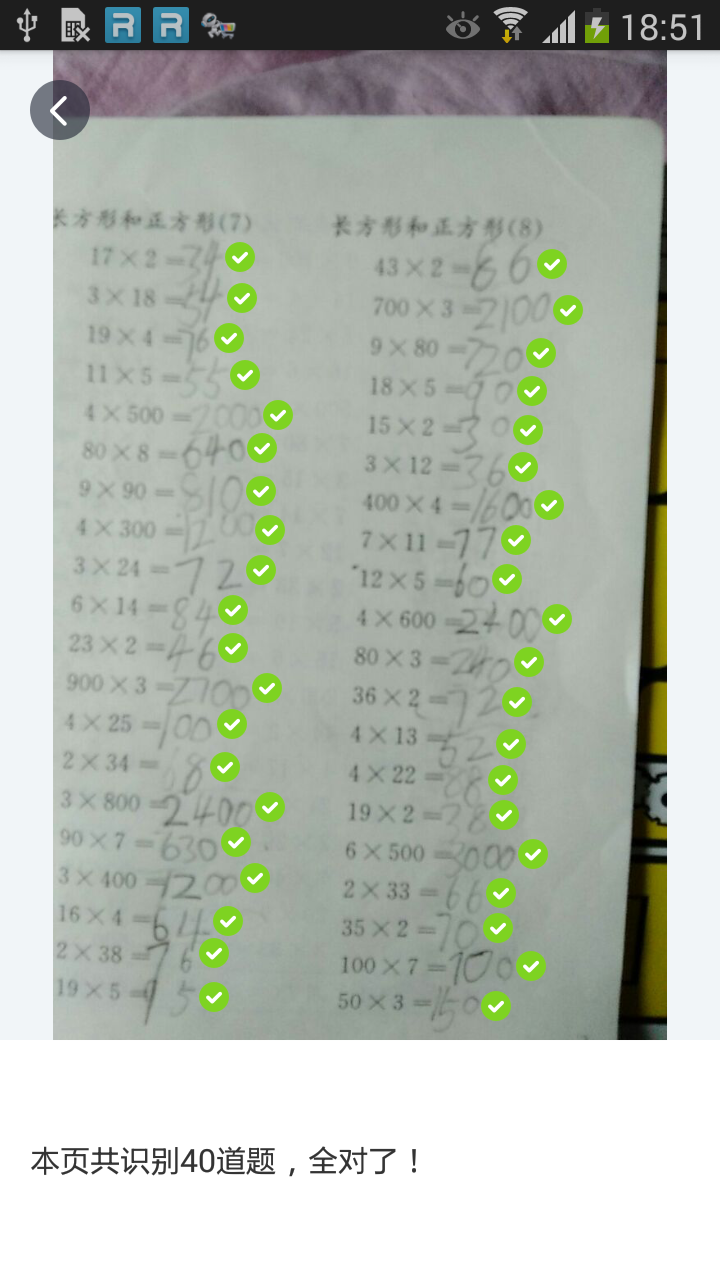 18:51
长方形和正方形(7)
17×2=34
3×18=54
19×4=76
11×5=55
4×500=2000
80×8=640
9×90=810
4×300=1200
3×24=72
6×14=84
23×2=46
900×3=2700
4×25=100
2×34=68
3×800=2400
90×7=630
3×400=1200
16×4=64
2×38=76
19×5=95
长方形和正方形(8)
43×2=86
700×3=2100
9×80=720
18×5=90
15×2=30
3×12=36
400×4=1600
7×11=77
12×5=60
4×600=2400
80×3=240
36×2=72
4×13=52
4×22=88
19×2=38
6×500=3000
2×33=66
35×2=70
100×7=700
50×3=150
本页共识别40道题，全对了！